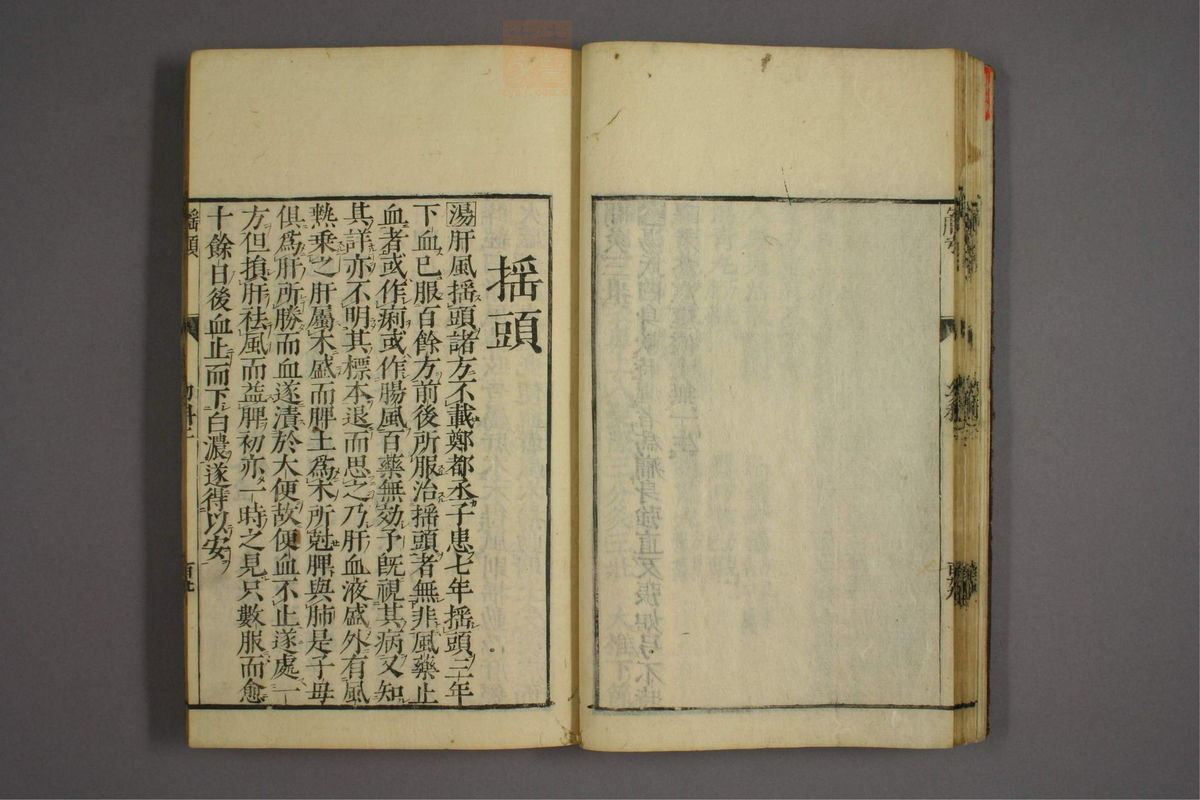 搖頭
湯肝風搖頭諸方不載鄭都丞子患七年搖頭三年
下血已服百餘方前後所服治搖頭者無非風藥止
血者或作痢或作腸風百藥無効予既視其病又知
其詳亦不明其標本退而思之乃肝血液盛外有風
熱乘之肝屬木盛而脾土為木所尅脾與肺是子母
俱為肝所勝而血遂漬於大便故便血不止遂處一
方但損肝祛風而益脾初亦一時之見只數服而愈
十餘日後血止而下白濃遂得以安
搖頭